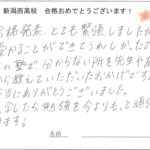 新潟西高校 合格おめでとうございます!
合格発表、とても緊張しましたが
受かることができてうれしかったです
の塾で分からない所を先生や友
から教えていただいたおかげです。
本当にありがとうございました。
勉強を今よりもっと頑張
ます。
名前